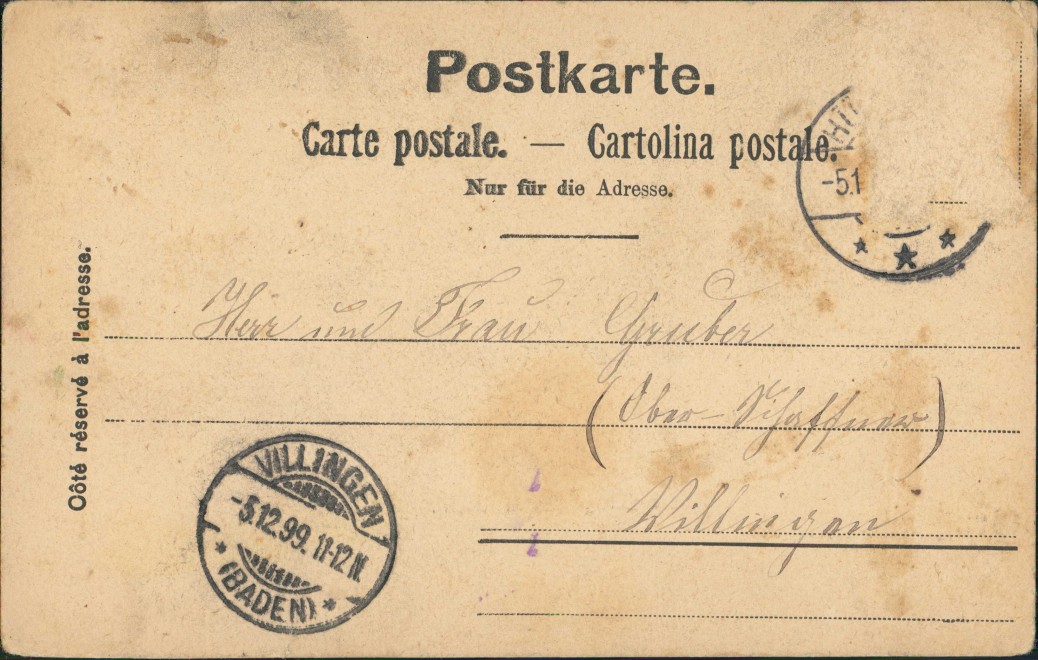 Postkarte.
Carte postale. — Cartolina postale.
Nur für die Adresse.
-5.1
Côté réservé à l'adresse.
Herr und Frau Gruber
(Ober-Schaffner)
Villingen
VILLINGEN
-5.12.99. 11-12 N.
* (BADEN) *